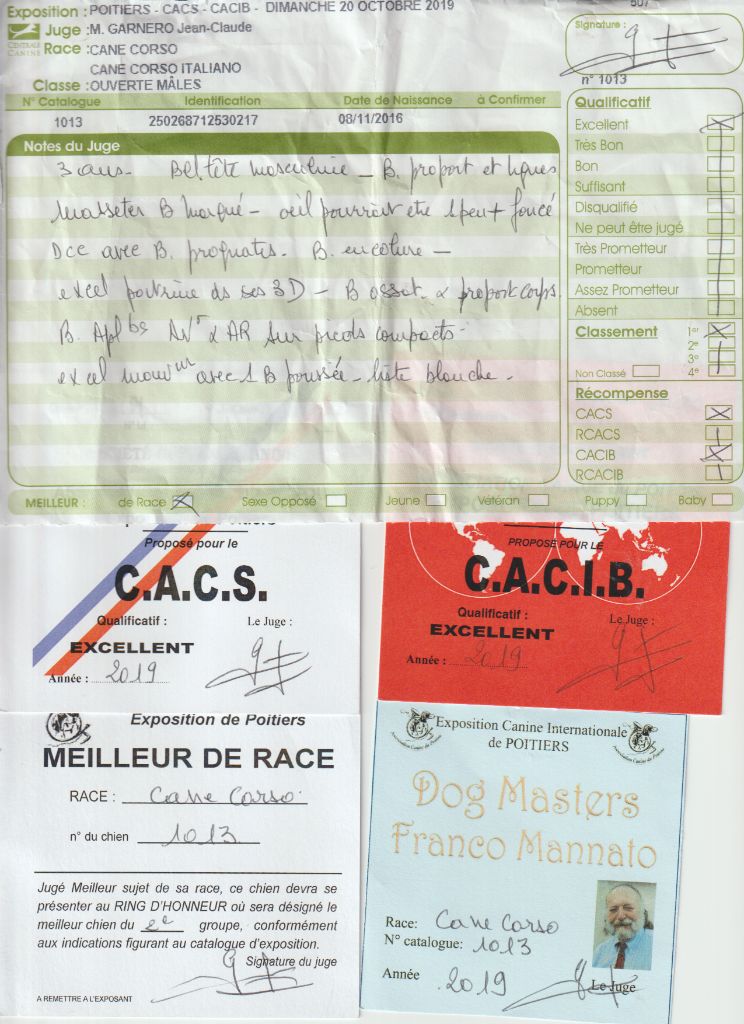 Exposition : POITIERS - CACS - CACIB - DIMANCHE 20 OCTOBRE 2019
CENTRALE CANINE
Juge : M. GARNERO Jean-Claude
Race : CANE CORSO
CANE CORSO ITALIANO
Classe : OUVERTE MÂLES
Signature :
n° 1013
N° Catalogue Identification Date de Naissance à Confirmer
1013 250268712530217 08/11/2016
Notes du Juge
3 ans - Bel. tête masculine - B. proport et lignes
masseter B marqué - oeil pourrait etre 1 peu + foncé
Dcc avec B. prognatis. B. encolure -
excel poitrine ds ses 3D - B ossat. & proport corps.
B. Aplbs AVt & AR sur pieds compacts -
excel mouvm avec 1 B poussée - liste blanche -
Qualificatif
Excellent
Très Bon
Bon
Suffisant
Disqualifié
Ne peut être jugé
Très Prometteur
Prometteur
Assez Prometteur
Absent
Classement 1er
2e
3e
Non Classé 4e
Récompense
CACS
RCACS
CACIB
RCACIB
MEILLEUR : de Race Sexe Opposé Jeune Vétéran Puppy Baby
Proposé pour le
C.A.C.S.
Qualificatif : Le Juge :
EXCELLENT
Année : 2019
PROPOSÉ POUR LE
C.A.C.I.B.
Qualificatif : Le Juge :
EXCELLENT
Année : 2019
Exposition de Poitiers
MEILLEUR DE RACE
RACE : Cane Corso
n° du chien 1013
Jugé Meilleur sujet de sa race, ce chien devra se
présenter au RING D'HONNEUR où sera désigné le
meilleur chien du 2e groupe, conformément
aux indications figurant au catalogue d'exposition.
Signature du juge
A REMETTRE A L'EXPOSANT
Exposition Canine Internationale
de POITIERS
Dog Masters
Franco Mannato
Race: Cane Corso
N° catalogue: 1013
Année 2019 Le Juge